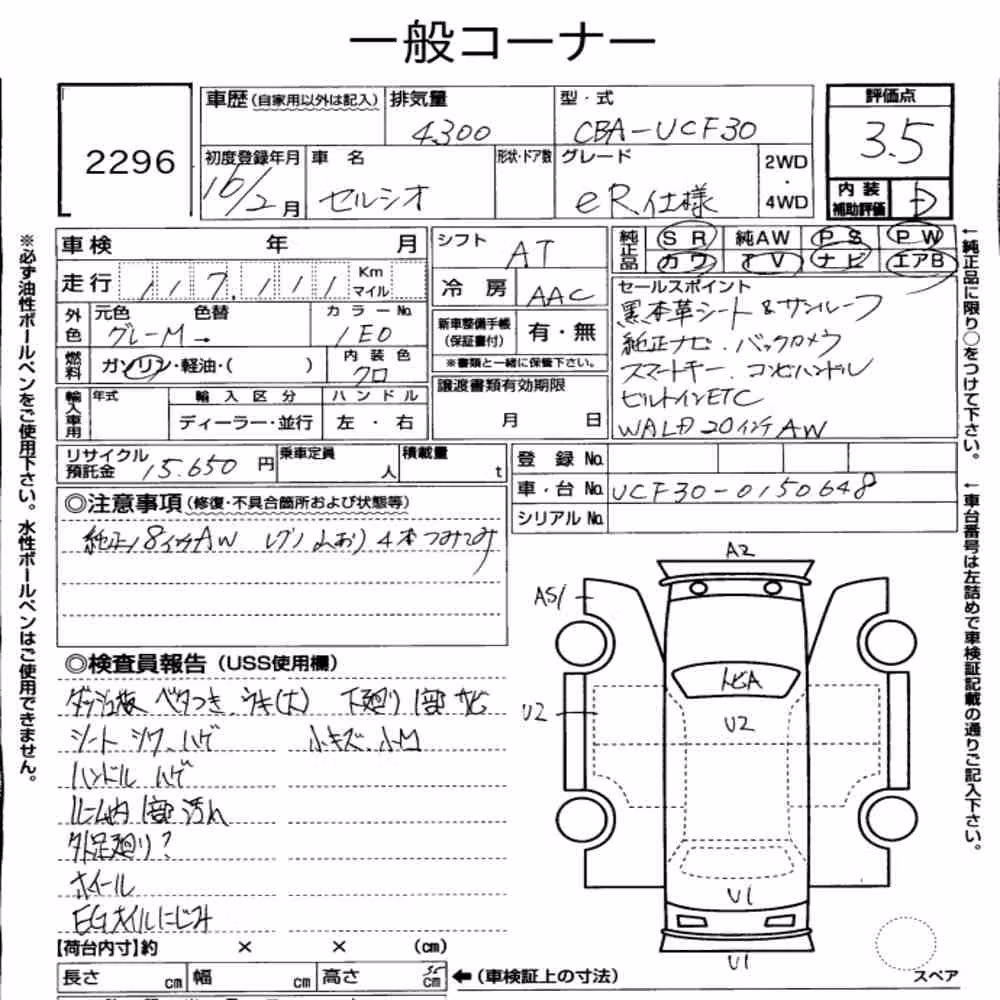 一般コーナー
2296
車歴(自家用以外は記入)
排気量
4300
型・式
CBA-UCF30
評価点
3.5
初度登録年月
16/2月
車名
セルシオ
形状・ドア数
グレード
eR仕様
2WD
・
4WD
内装
補助評価
D
車検 年 月
走行 117,111 Km
マイル
外色
元色 色替
グレーM→
カラーNo.
1E0
燃料
ガソリン・軽油・( )
内装色
クロ
輸入車用
年式
輸入区分
ディーラー・並行
ハンドル
左・右
シフト
AT
冷房 AAC
新車整備手帳
(保証書付)
有・無
※書類と一緒に保管下さい。
譲渡書類有効期限
月 日
純正品
SR 純AW PS PW
カワ TV ナビ エアB
セールスポイント
黒本革シート&サンルーフ
純正ナビ.バックカメラ
スマートキー.コンビハンドル
ビルトインETC
WALD 20インチAW
リサイクル
預託金
15.650円
乗車定員
人
積載量
t
登録No.
車・台No. UCF30-0150648
シリアルNo.
◎注意事項(修復・不具合箇所および状態等)
純正18インチAW レグノ 山あり 4本つみこみ
◎検査員報告(USS使用欄)
ダッシュ板 ベタつき.ウキ(大) 下廻り1部サビ
シート シワ.ハゲ 小キズ.小凹
ハンドル ハゲ
ルーム内1部汚れ
外足廻り?
ホイール
EGオイルにじみ
【荷台内寸】約 × × (cm)
長さ cm 幅 cm 高さ cm
←(車検証上の寸法)
A2
AS1
トビA
U2
U2
U1
U1
スペア
※必ず油性ボールペンをご使用下さい。水性ボールペンはご使用できません。
←純正品に限り○をつけて下さい。
←車台番号は左詰めで車検証記載の通りご記入下さい。